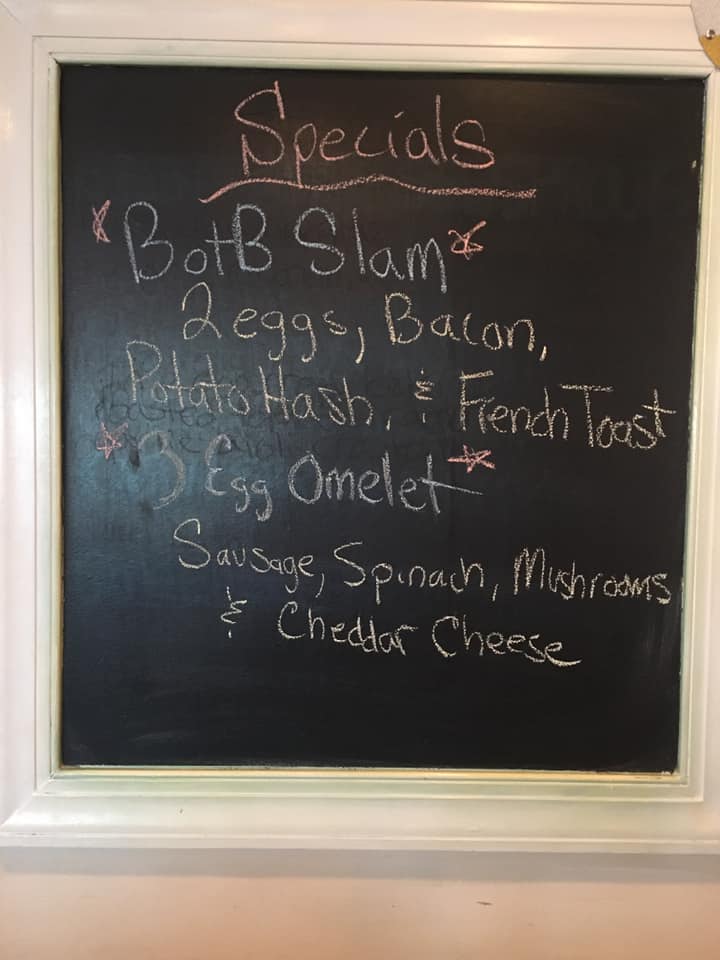 Specials
* BotB Slam *
2 eggs, Bacon,
Potato Hash, & French Toast
* 3 Egg Omelet *
Sausage, Spinach, Mushrooms
& Cheddar Cheese